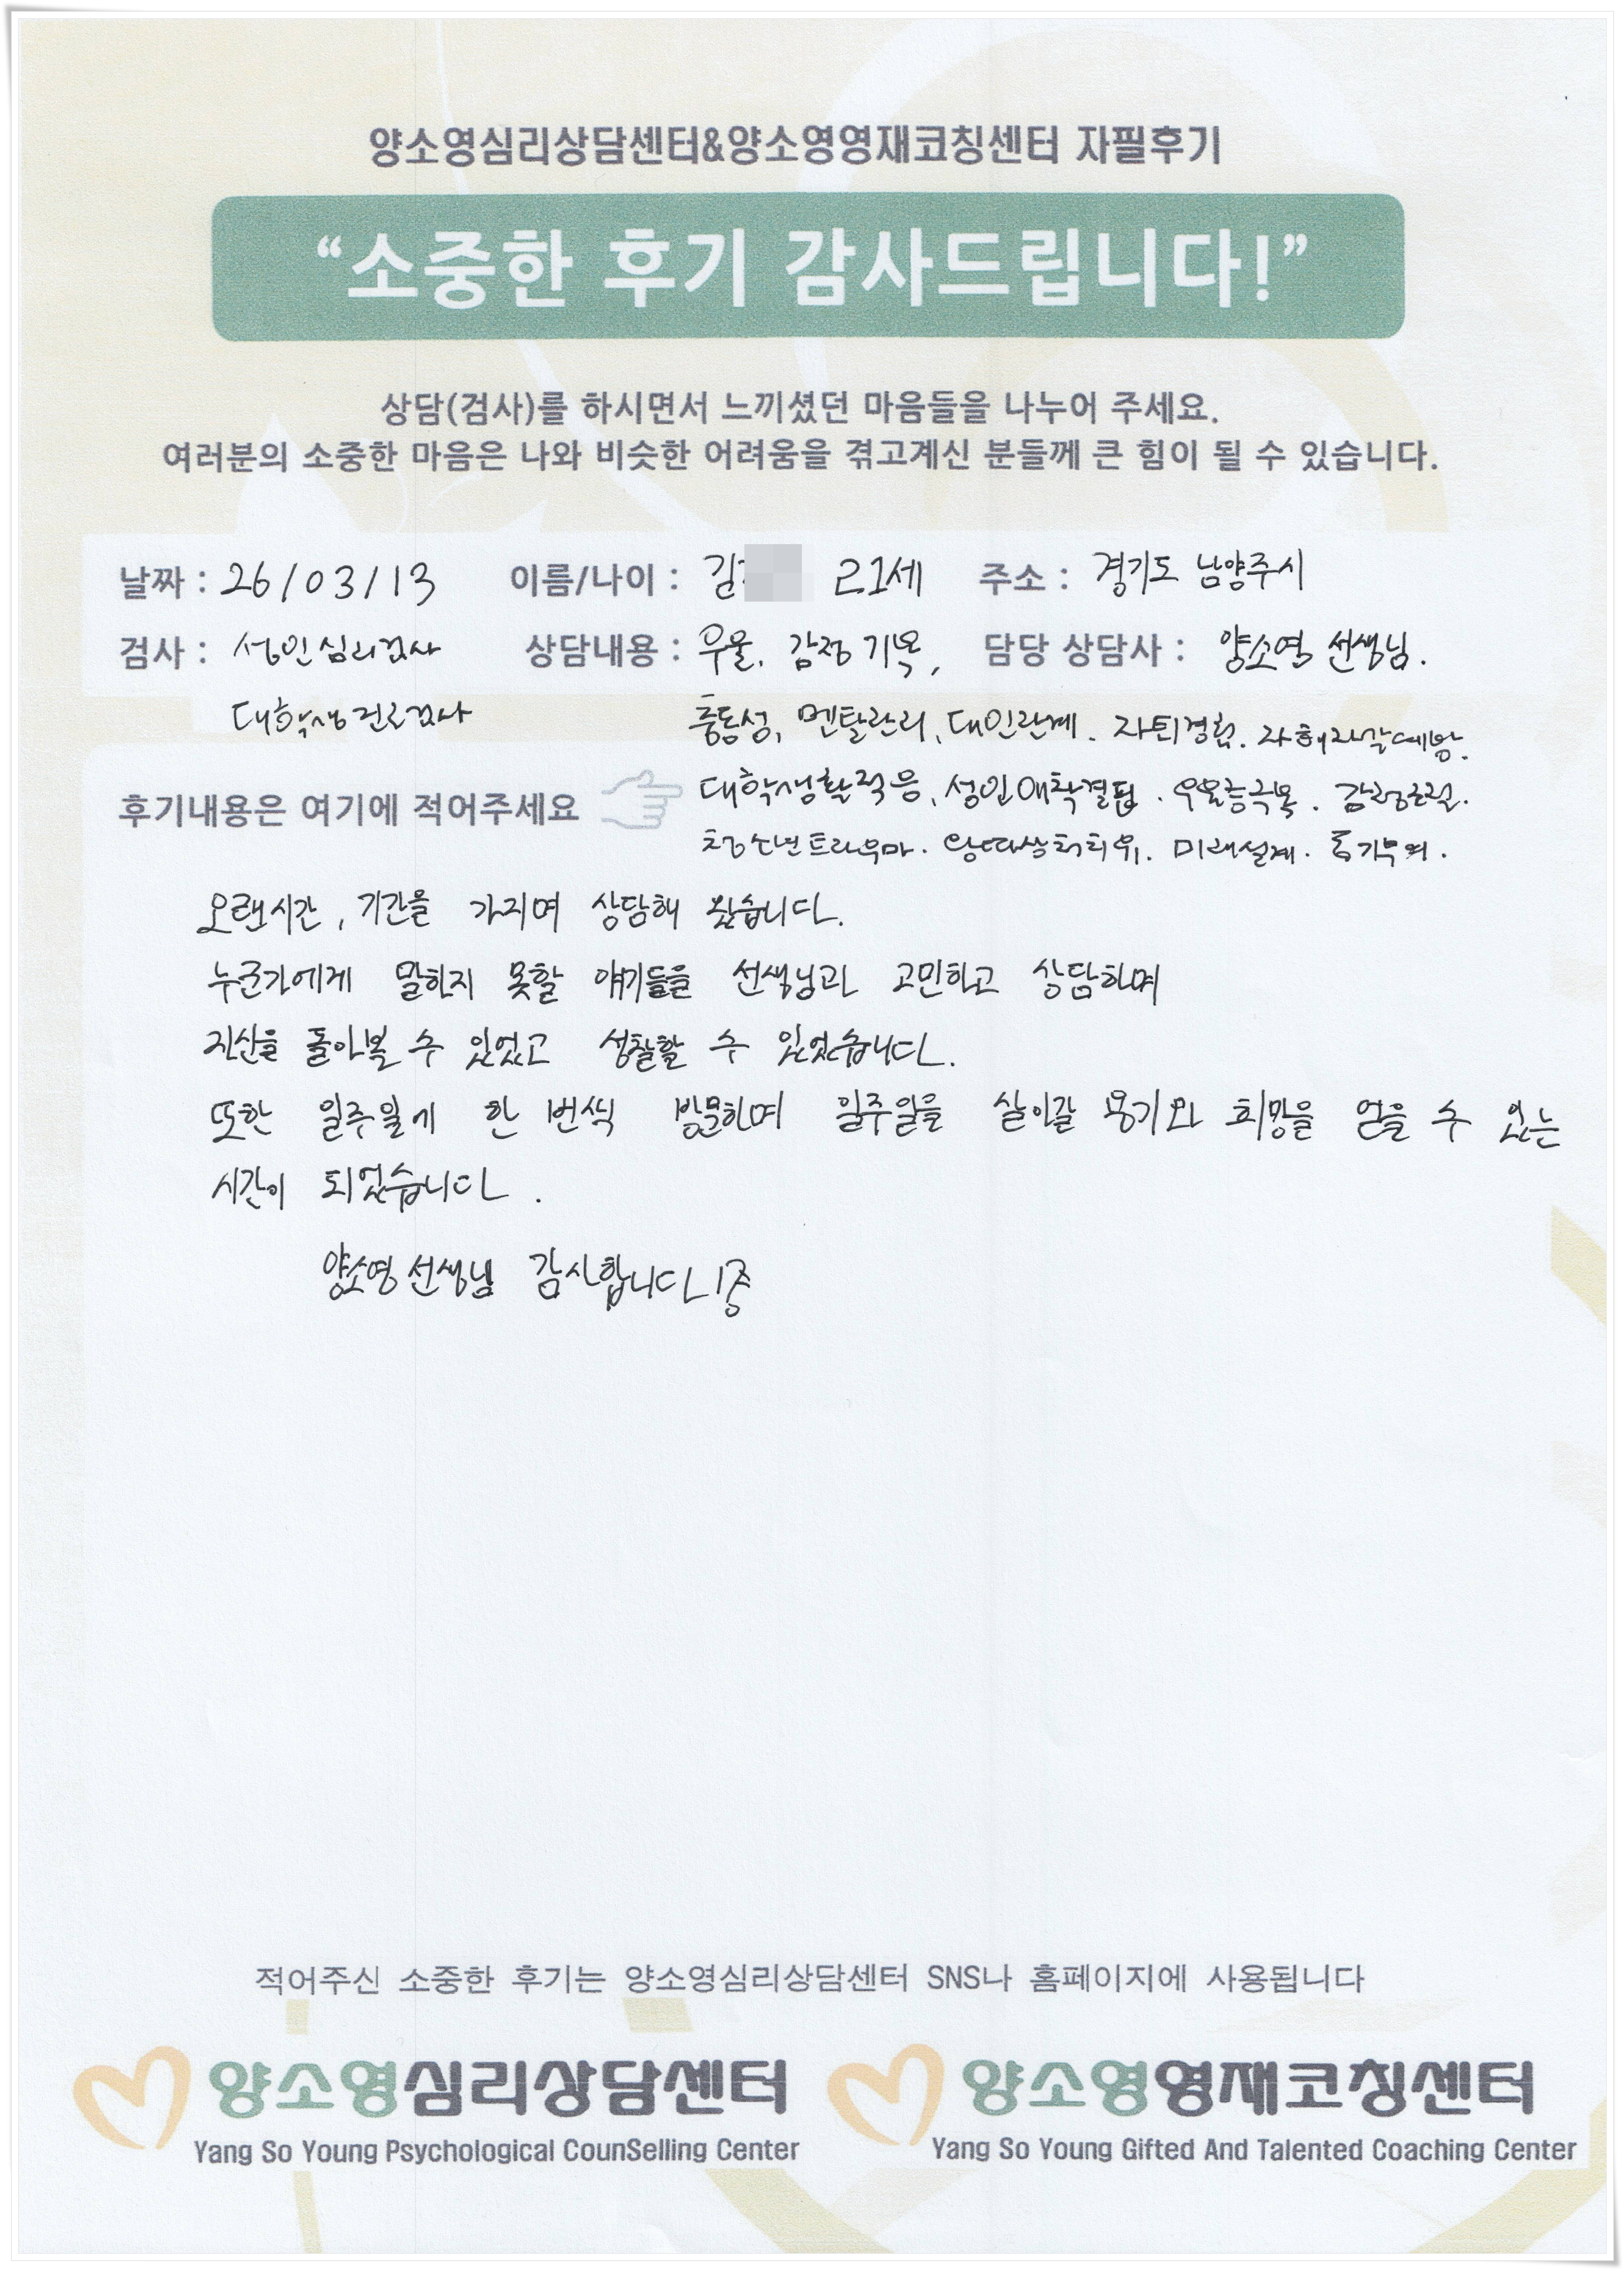 양소영심리상담센터&양소영영재코칭센터 자필후기
“소중한 후기 감사드립니다!”
상담(검사)를 하시면서 느끼셨던 마음들을 나누어 주세요.
여러분의 소중한 마음은 나와 비슷한 어려움을 겪고계신 분들께 큰 힘이 될 수 있습니다.
날짜 : 26/03/13 이름/나이 : 김 21세 주소 : 경기도 남양주시
검사 : 성인심리검사 상담내용 : 우울. 감정기복, 담당 상담사 : 양소영 선생님.
대학생진로검사 충동성, 멘탈관리, 대인관계. 자퇴경험. 자해자살예방.
대학생활적응, 성인애착결핍. 우울증극복. 감정조절.
후기내용은 여기에 적어주세요
청소년트라우마. 왕따상처치유. 미래설계. 동기부여.
오랜시간, 기간을 가지며 상담해 왔습니다.
누군가에게 말하지 못할 얘기들을 선생님과 고민하고 상담하며
자신을 돌아볼 수 있었고 성찰할 수 있었습니다.
또한 일주일에 한 번씩 방문하며 일주일을 살아갈 용기와 희망을 얻을 수 있는
시간이 되었습니다.
양소영 선생님 감사합니다
적어주신 소중한 후기는 양소영심리상담센터 SNS나 홈페이지에 사용됩니다
양소영심리상담센터 양소영영재코칭센터
Yang So Young Psychological CounSelling Center Yang So Young Gifted And Talented Coaching Center